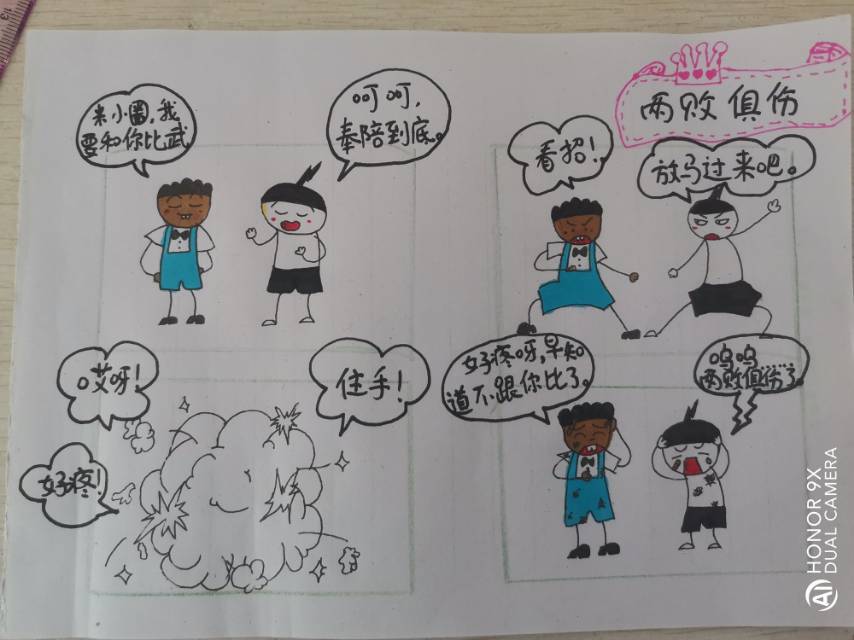 两败俱伤
米小圈,我
要和你比武
呵呵,
奉陪到底。
看招!
放马过来吧。
哎呀!
住手!
好疼!
好疼呀,早知
道不跟你比了。
呜呜
两败俱伤了。
HONOR 9X
AI DUAL CAMERA